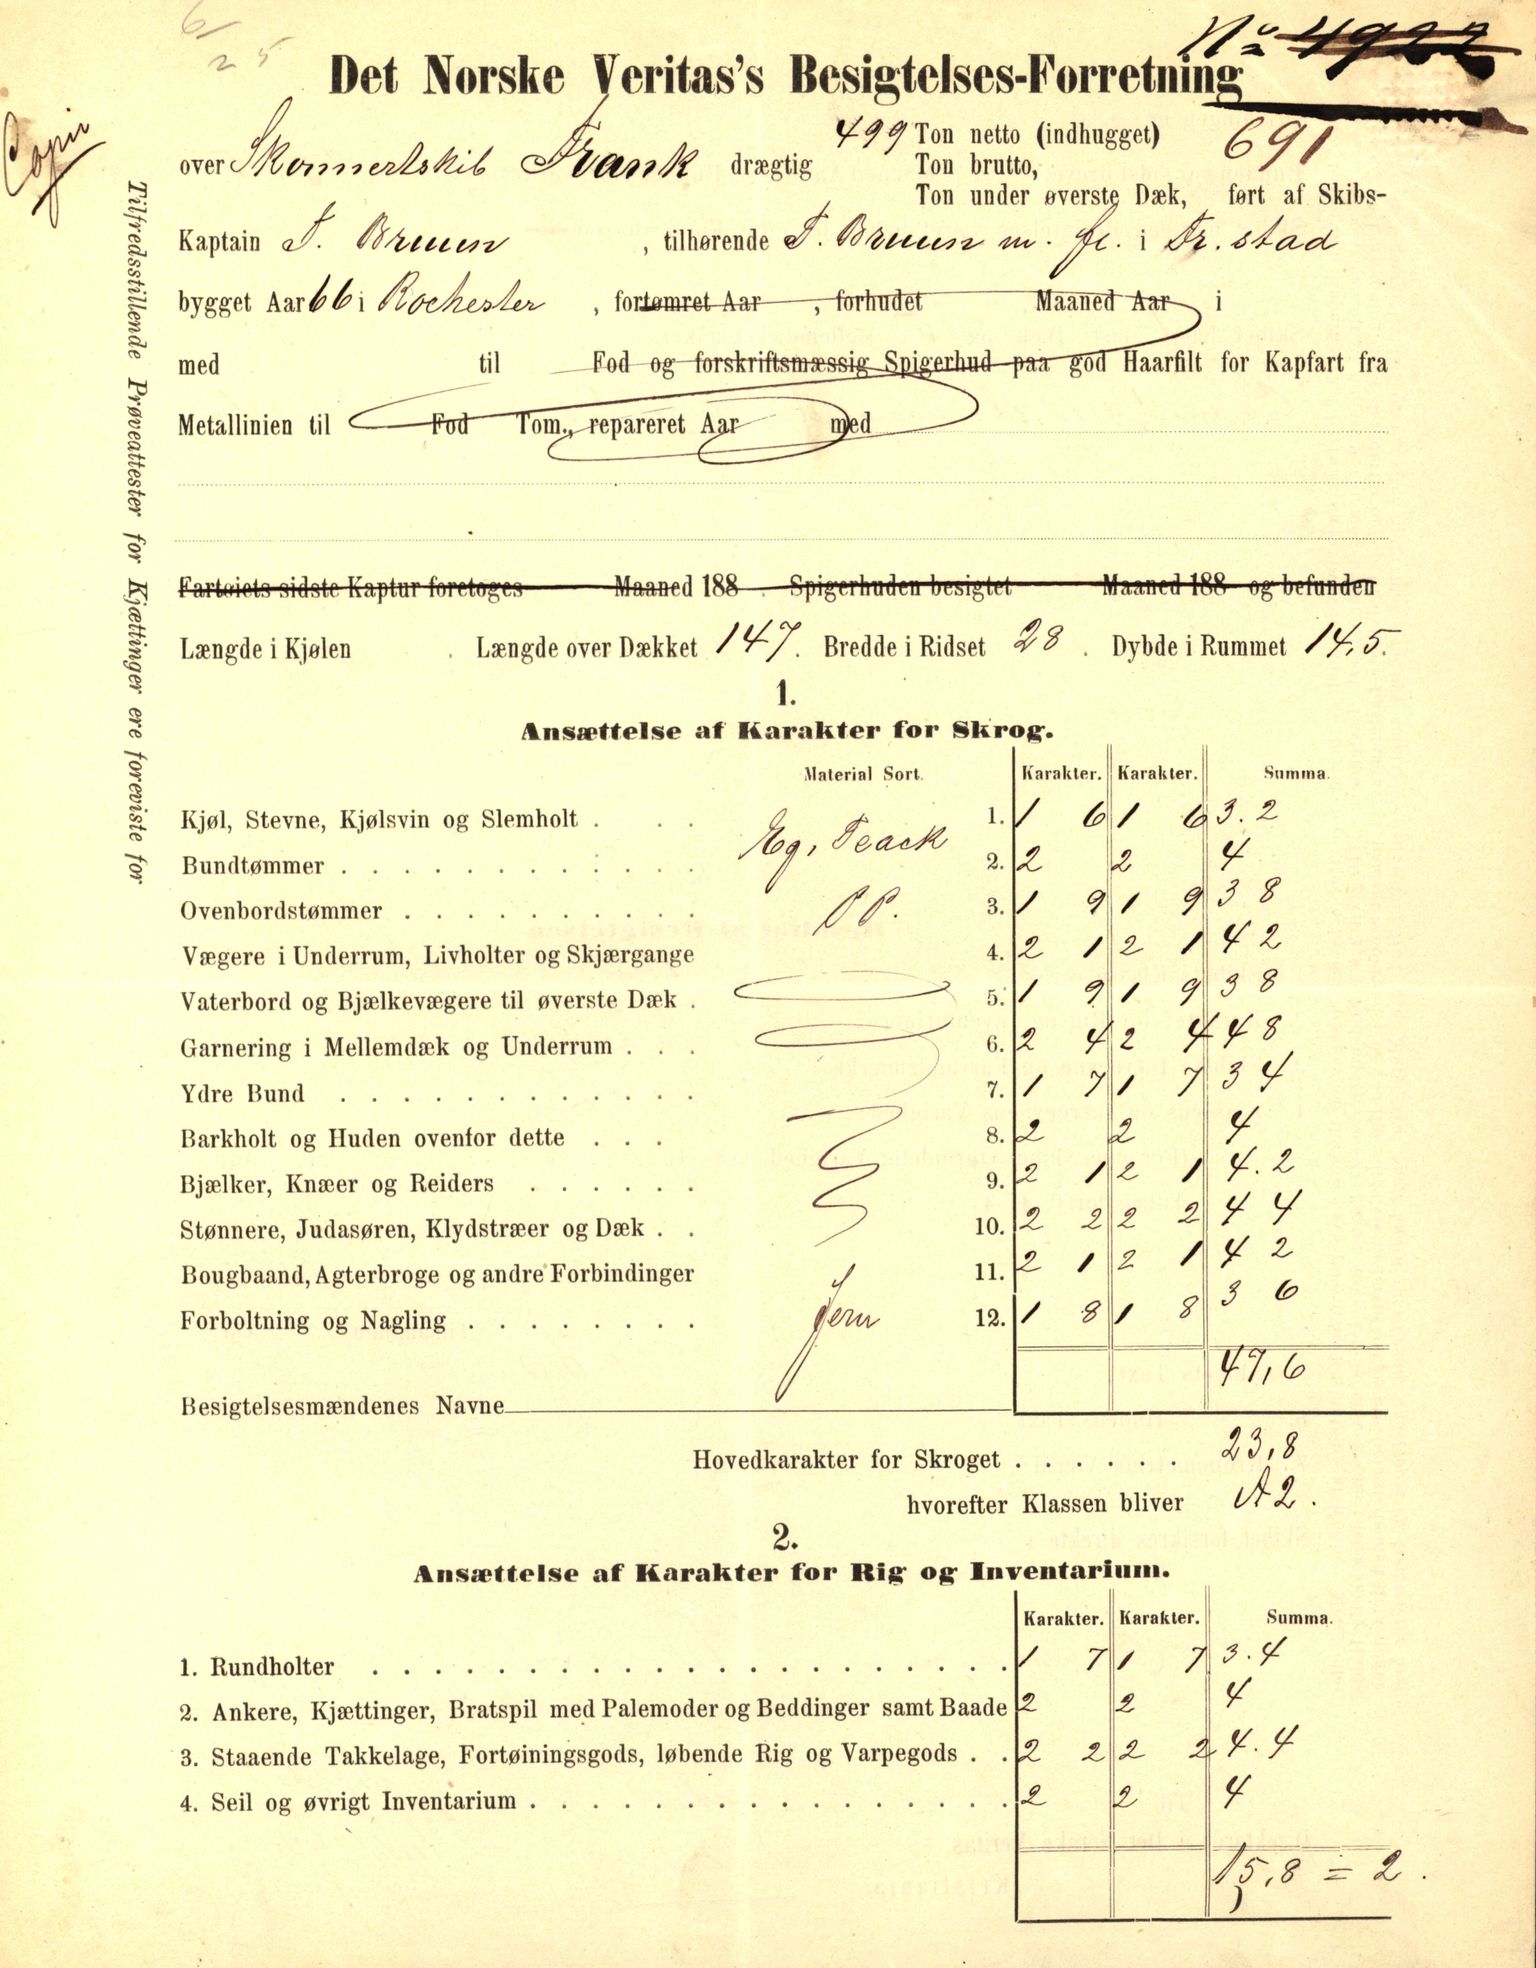 6/25
No 4922
Det Norske Veritas's Besigtelses-Forretning
Copi
499 Ton netto (indhugget) 691
over Skonnertskib Frank drægtig Ton brutto,
Ton under øverste Dæk, ført af Skibs-
Kaptain T. Bruun , tilhørende T. Bruun m. fl. i Fr. stad
bygget Aar 66 i Rochester , fortømret Aar , forhudet Maaned Aar i
med til Fod og forskriftsmæssig Spigerhud paa god Haarfilt for Kapfart fra
Metallinien til Fod Tom., repareret Aar med
Fartøiets sidste Kaptur foretoges Maaned 188 . Spigerhuden besigtet Maaned 188 og befunden
Længde i Kjølen . Længde over Dækket 147. Bredde i Ridset 28 . Dybde i Rummet 14,5.
Tilfredsstillende Prøveattester for Kjættinger ere foreviste for
1.
Ansættelse af Karakter for Skrog.
Material Sort. Karakter. Karakter. Summa.
Kjøl, Stevne, Kjølsvin og Slemholt . . . 1. 1 6 1 6 3.2
Eg, Teack
Bundtømmer . . . . . . . . . . . 2. 2 2 4
Ovenbordstømmer . . . . . . . . . PP. 3. 1 9 1 9 3 8
Vægere i Underrum, Livholter og Skjærgange 4. 2 1 2 1 4 2
Vaterbord og Bjælkevægere til øverste Dæk . 5. 1 9 1 9 3 8
Garnering i Mellemdæk og Underrum . . . 6. 2 4 2 4 4 8
Ydre Bund . . . . . . . . . . . 7. 1 7 1 7 3 4
Barkholt og Huden ovenfor dette . . . 8. 2 2 4
Bjælker, Knæer og Reiders . . . . . . 9. 2 1 2 1 4.2
Stønnere, Judasøren, Klydstræer og Dæk . . 10. 2 2 2 2 4 4
Bougbaand, Agterbroge og andre Forbindinger 11. 2 1 2 1 4 2
Forboltning og Nagling . . . . . . . . Jern 12. 1 8 1 8 3 6
47,6
Besigtelsesmændenes Navne
Hovedkarakter for Skroget . . . . . . 23,8
hvorefter Klassen bliver A2.
2.
Ansættelse af Karakter for Rig og Inventarium.
Karakter. Karakter. Summa.
1. Rundholter . . . . . . . . . . . . . . . . . . 1 7 1 7 3.4
2. Ankere, Kjættinger, Bratspil med Palemoder og Beddinger samt Baade 2 2 4
3. Staaende Takkelage, Fortøiningsgods, løbende Rig og Varpegods . . 2 2 2 2 4.4
4. Seil og øvrigt Inventarium . . . . . . . . . . . . . . 2 2 4
15,8 = 2.